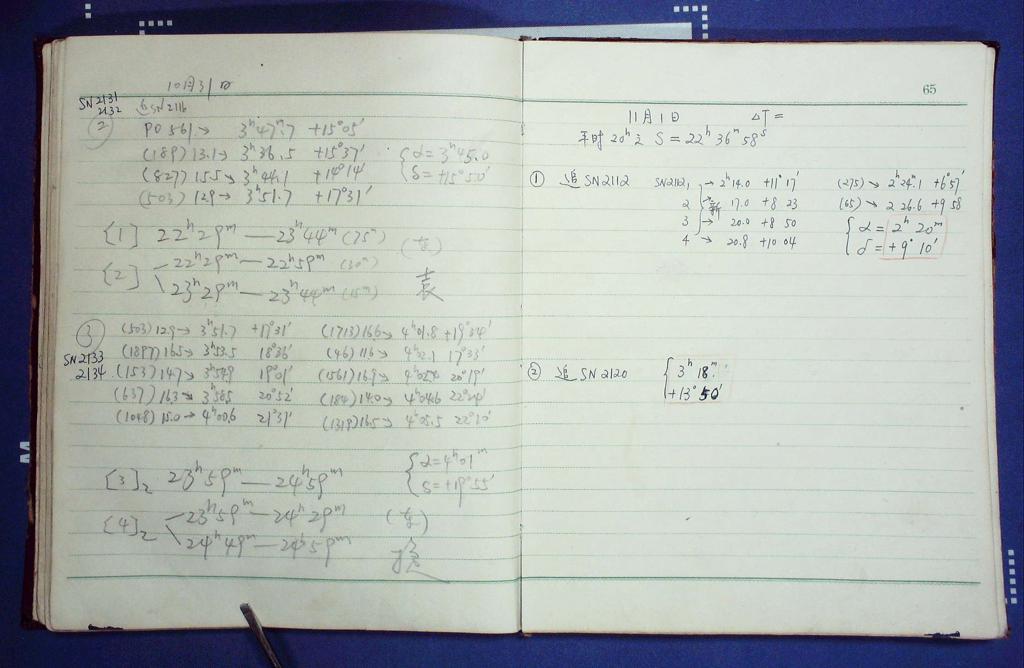 10月31日
SN2131
2132
②
PO 561→ 3ʰ47ᵐ.7 +15°05′
(189)13.1→ 3ʰ36.5 +15°37′
(827)15.5→ 3ʰ44.1 +14°14′
(503)12.9→ 3ʰ51.7 +17°31′
{α=3ʰ45.0
δ=+15°50′
[1] 22ʰ29ᵐ—23ʰ44ᵐ(75ᵐ)
[2] 22ʰ29ᵐ—22ʰ59ᵐ(30ᵐ)
23ʰ29ᵐ—23ʰ44ᵐ(15ᵐ)
③
SN2133
2134
(503)12.9→ 3ʰ51.7 +17°31′ (1713)16.6→ 4ʰ01.8 +19°34′
(1897)16.5→ 3ʰ53.5 18°36′ (46)11.6→ 4ʰ02.1 17°33′
(153)14.7→ 3ʰ54.9 19°01′ (1561)16.9→ 20°19′
(637)16.3→ 20°52′ (184)14.0→ 4ʰ04.6
(1048)15.0→ 4ʰ00.6 21°31′ (1319)16.5→ 4ʰ05.5 22°10′
{α=4ʰ01ᵐ
δ=+19°55′
[3]₂ 23ʰ59ᵐ—24ʰ59ᵐ
[4]₂ 23ʰ59ᵐ—24ʰ29ᵐ
24ʰ49ᵐ—24ʰ59ᵐ
65
11月1日 ΔT=
平时20ʰ之 S=22ʰ36ᵐ58ˢ
① 追SN2112 SN2112₁→ 2ʰ14.0 +11°17′ (275)→ 2ʰ24ᵐ.1 +6°57′
2 新 17.0 +8 23 (65)→ 2 26.6 +9 58
3→ 20.0 +8 50
4→ 20.8 +10 04
{α=2ʰ20ᵐ
δ=+9°10′
② 追SN2120 {3ʰ18ᵐ
+13°50′